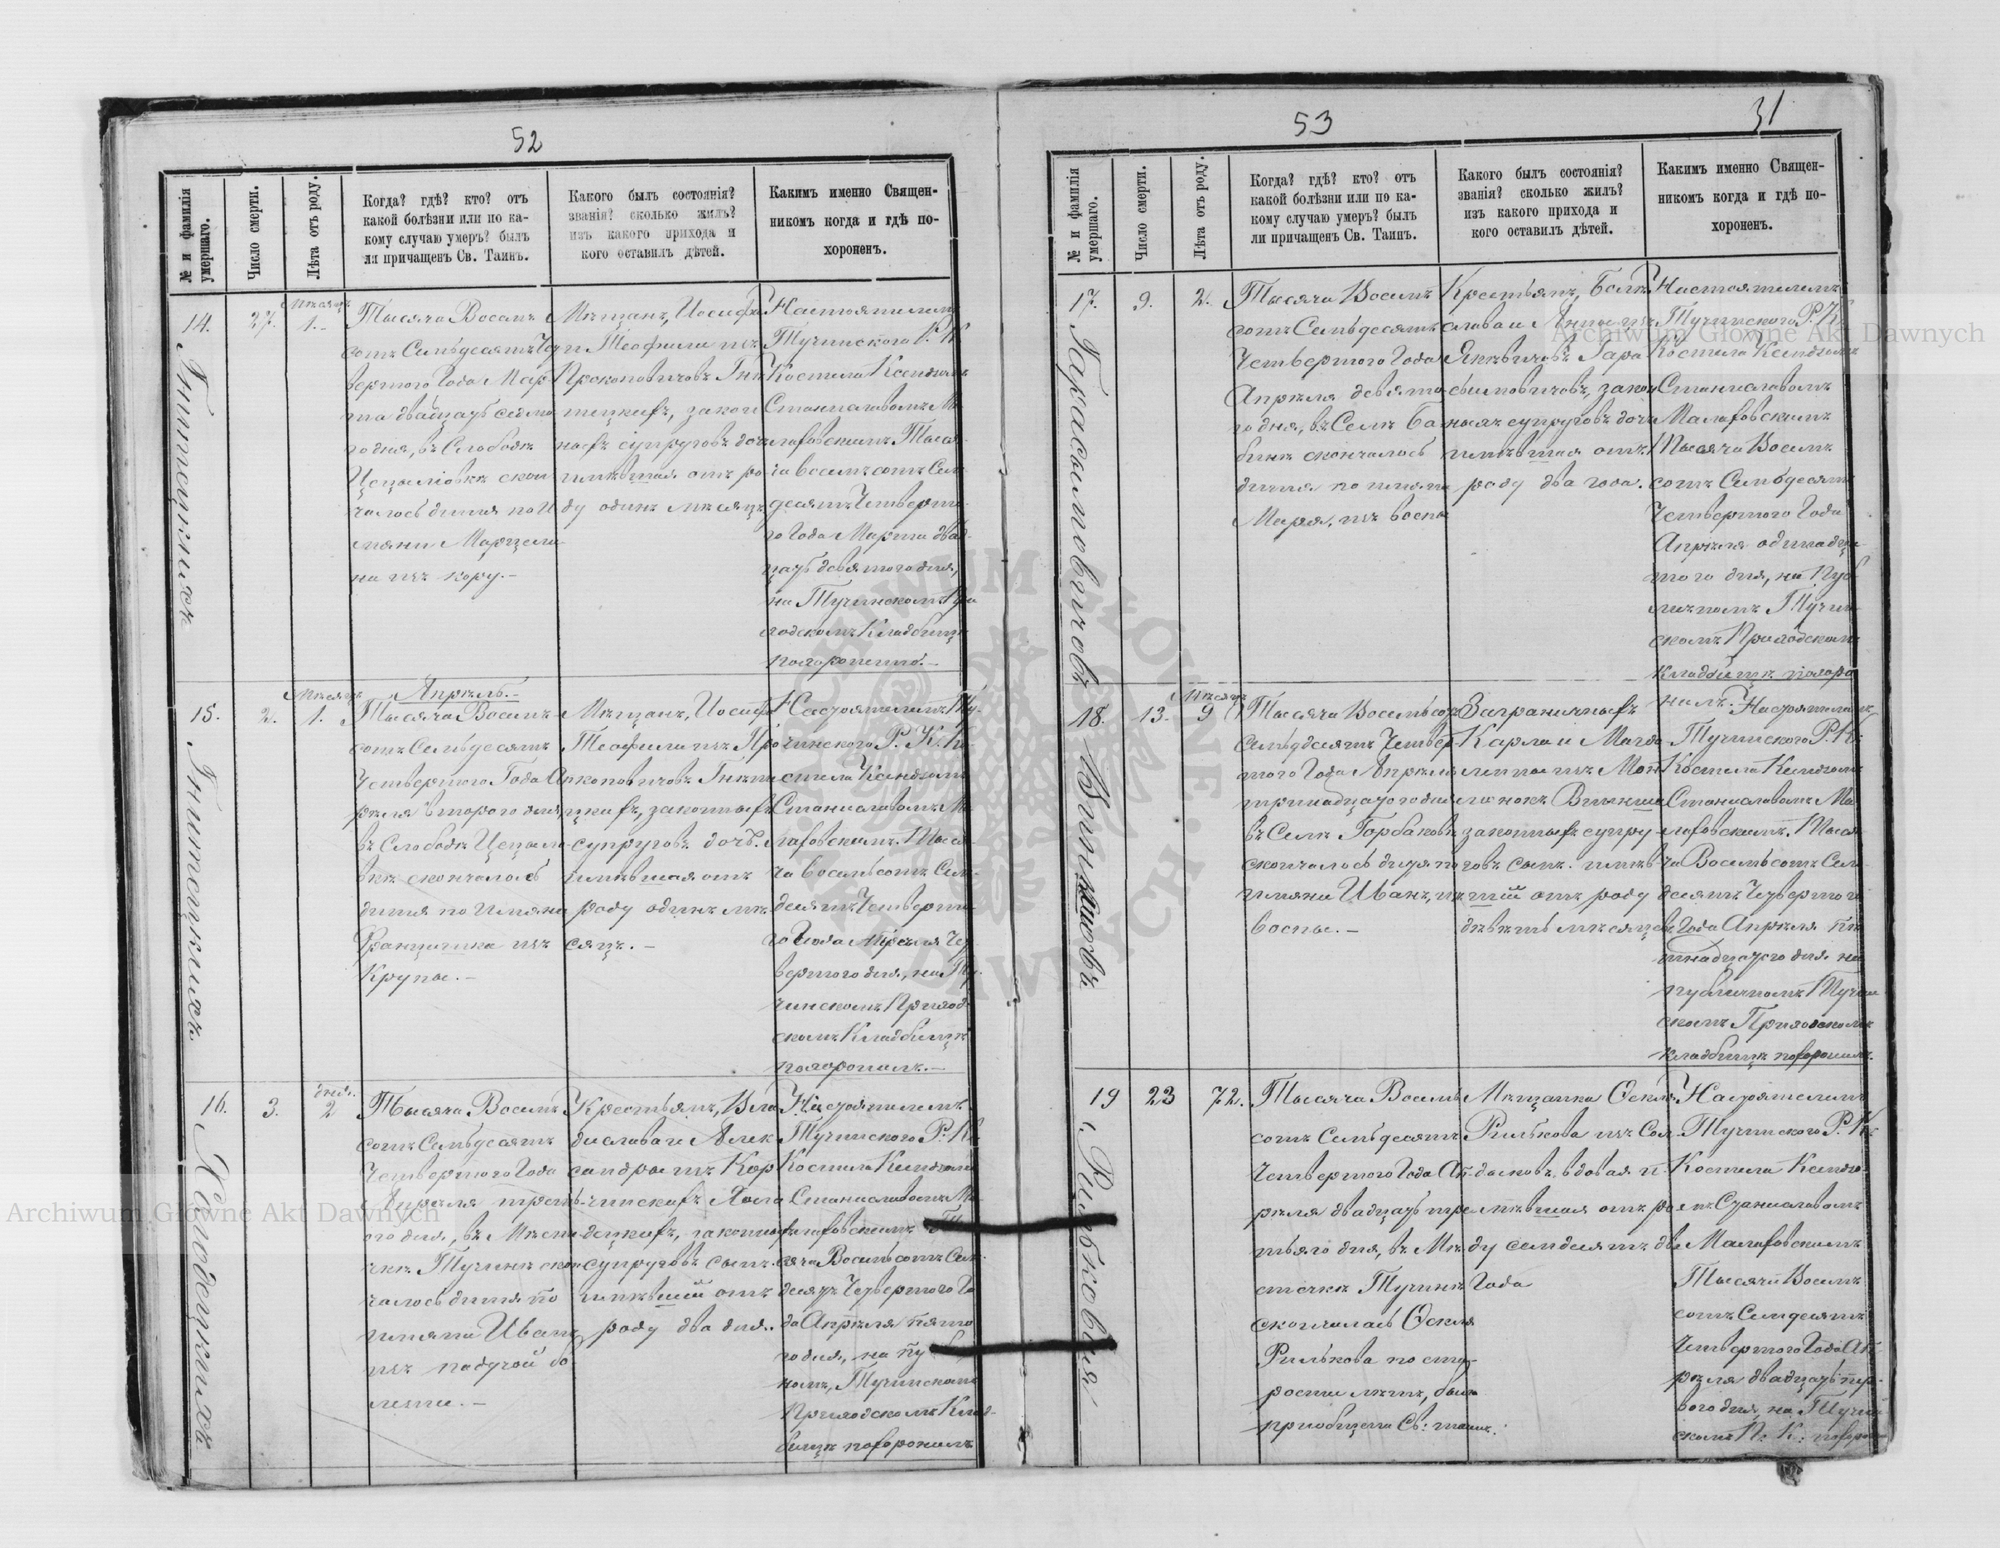 52
№ и фамилія умершаго.
Число смерти.
Лѣта отъ роду.
Когда? гдѣ? кто? отъ
какой болѣзни или по ка-
кому случаю умеръ? былъ
ли причащенъ Св. Таинъ.
Какого былъ состоянія?
званія? сколько жилъ?
изъ какого прихода и
кого оставилъ дѣтей.
Какимъ именно Священ-
никомъ когда и гдѣ по-
хороненъ.
14.
27.
мѣсяцъ
1.
Тысяча Восемъ
сотъ Семьдесятъ Чет
вертого Года Мар
та двадцать седмо
го дня, въ Слободѣ
Цецыліовкѣ скон
чалось дитя по И
мяни Марцели
на изъ кору.-
Мѣщанъ, Іосифа
и Теофили изъ
Прокоповичовъ
закон
ныхъ супруговъ дочь
имѣвшая отъ ро
ду одинъ мѣсяцъ
Настоятелемъ
Тучинского Р. К.
Костела Ксендзомъ
Станиславомъ Ма
лафовскимъ Тыся
ча восемъ сотъ Сем
десятъ Четверто
го Года Марта двад
цать девятого дня,
на Тучинскомъ При
ходскомъ Кладбищѣ
похоронено.-
15.
2.
мѣсяцъ
1.
Апрѣль.-
Тысяча Восемъ
сотъ Семьдесятъ
Четвертого Года Ап
рѣля второго дня
въ Слободѣ Цецыліо
вкѣ скончалось
дитя по Имяни
Францишка изъ
Крупы.-
Мѣщанъ, Іосифа
Теофили изъ Про
коповичовъ
законныхъ
супруговъ дочь.
имѣвшая отъ
роду одинъ мѣ
сяцъ.-
Настоятелемъ Ту-
чинского Р. К. Ко
стела Ксендзомъ
Станиславомъ Ма
лафовскимъ Тыся
ча восемьсотъ Сем-
десятъ Четверто-
го Года Апрѣля Чет
вертого дня, на Ту-
чинскомъ Приход-
скомъ Кладбищѣ
похоронилъ.-
16.
3.
дней.
2
Тысяча Восемъ
сотъ Семьдесятъ
Четвертого Года
Апрѣля треть
ого дня, въ Мѣсте
чкѣ Тучинѣ скон
чалось дитя по
имяни Иванъ
изъ падучой бо
лезни.-
Крестьянъ, Вла
дислава и Алек
сандры изъ Кор
чинскихъ
законныхъ
супруговъ сынъ.
имѣвшій отъ
роду два дня.
Настоятелемъ
Тучинского Р. К.
Костела Ксендзомъ
Станиславомъ Ма-
лафовскимъ Ты
сяча Восемьсотъ Сем-
десятъ Четвертого Го
да Апрѣля пято
го дня, на пуб
номъ, Тучинскомъ
Приходскомъ Клад-
бищѣ похоронилъ
53
31
№ и фамилія умершаго.
Число смерти.
Лѣта отъ роду.
Когда? гдѣ? кто? отъ
какой болѣзни или по ка-
кому случаю умеръ? былъ
ли причащенъ Св. Таинъ.
Какого былъ состоянія?
званія? сколько жилъ?
изъ какого прихода и
кого оставилъ дѣтей.
Какимъ именно Священ-
никомъ когда и гдѣ по-
хороненъ.
17.
Гарасымовичовъ
9.
2.
Тысяча Восемъ
сотъ Семьдесятъ
Четвертого Года
Апрѣля девято
го дня, въ Селѣ
скончалось
дитя по имяни
Марія, изъ воспы
Крестьянъ, Боле
слава и Анны изъ
Гара
сымовичовъ, закон
ныхъ супруговъ дочь
имѣвшая отъ
роду два года.
Настоятелемъ
Тучинского Р. К.
Костела Ксендзомъ
Станиславомъ
Малафовскимъ
Тысяча Восемъ
сотъ Семьдесятъ
Четвертого Года
Апрѣля одинадца
того дня, на Пуб
личномъ Тучин
скомъ Приходскомъ
Кладбищѣ похоро
нилъ.
18.
13.
мѣсяцъ
9
Тысяча Восемьсотъ
Семьдесятъ Четвер
того Года Апрѣля
тринадцатого дня
въ Селѣ Горбаковѣ
скончалось дитя по
имяни Иванъ, изъ
воспы.-
Заграничныхъ
Карла и Магда
лины изъ
законныхъ супру
говъ сынъ. имѣв
шій отъ роду
девять мѣсяцовъ
Настоятелемъ
Тучинского Р. К.
Костела Ксендзомъ
Станиславомъ Ма
лафовскимъ. Тыся
ча Восемьсотъ Сем-
десятъ Четвертого
Года Апрѣля пя
тнадцатого дня на
публичномъ Тучин
скомъ Приходскомъ
кладбищѣ похоронилъ.
19
Рилькова
23
72.
Тысяча Восемъ
сотъ Семьдесятъ
Четвертого Года Ап
рѣля двадцать тре
тьяго дня, въ Мѣ
стечкѣ Тучинѣ
скончилась Фекля
Рилькова по ста-
рости лѣтъ, была
приобщена Св: таин.
Мѣщанка Фекля
Рилькова изъ
вдова и
мѣвшая отъ ро
ду семдесятъ два
Года
Настоятелемъ
Тучинского Р. К.
Костела Ксендзо-
мъ Станиславомъ
Малафовскимъ
Тысяча Восемъ
сотъ Семдесятъ
Четвертого Года Ап
рѣля двадцать пер-
вого дня, на Тучин
скомъ П. К. похорон
Archiwum Główne Akt Dawnych
Archiwum Główne Akt Dawnych
ARCHIWUM GŁÓWNE AKT DAWNYCH